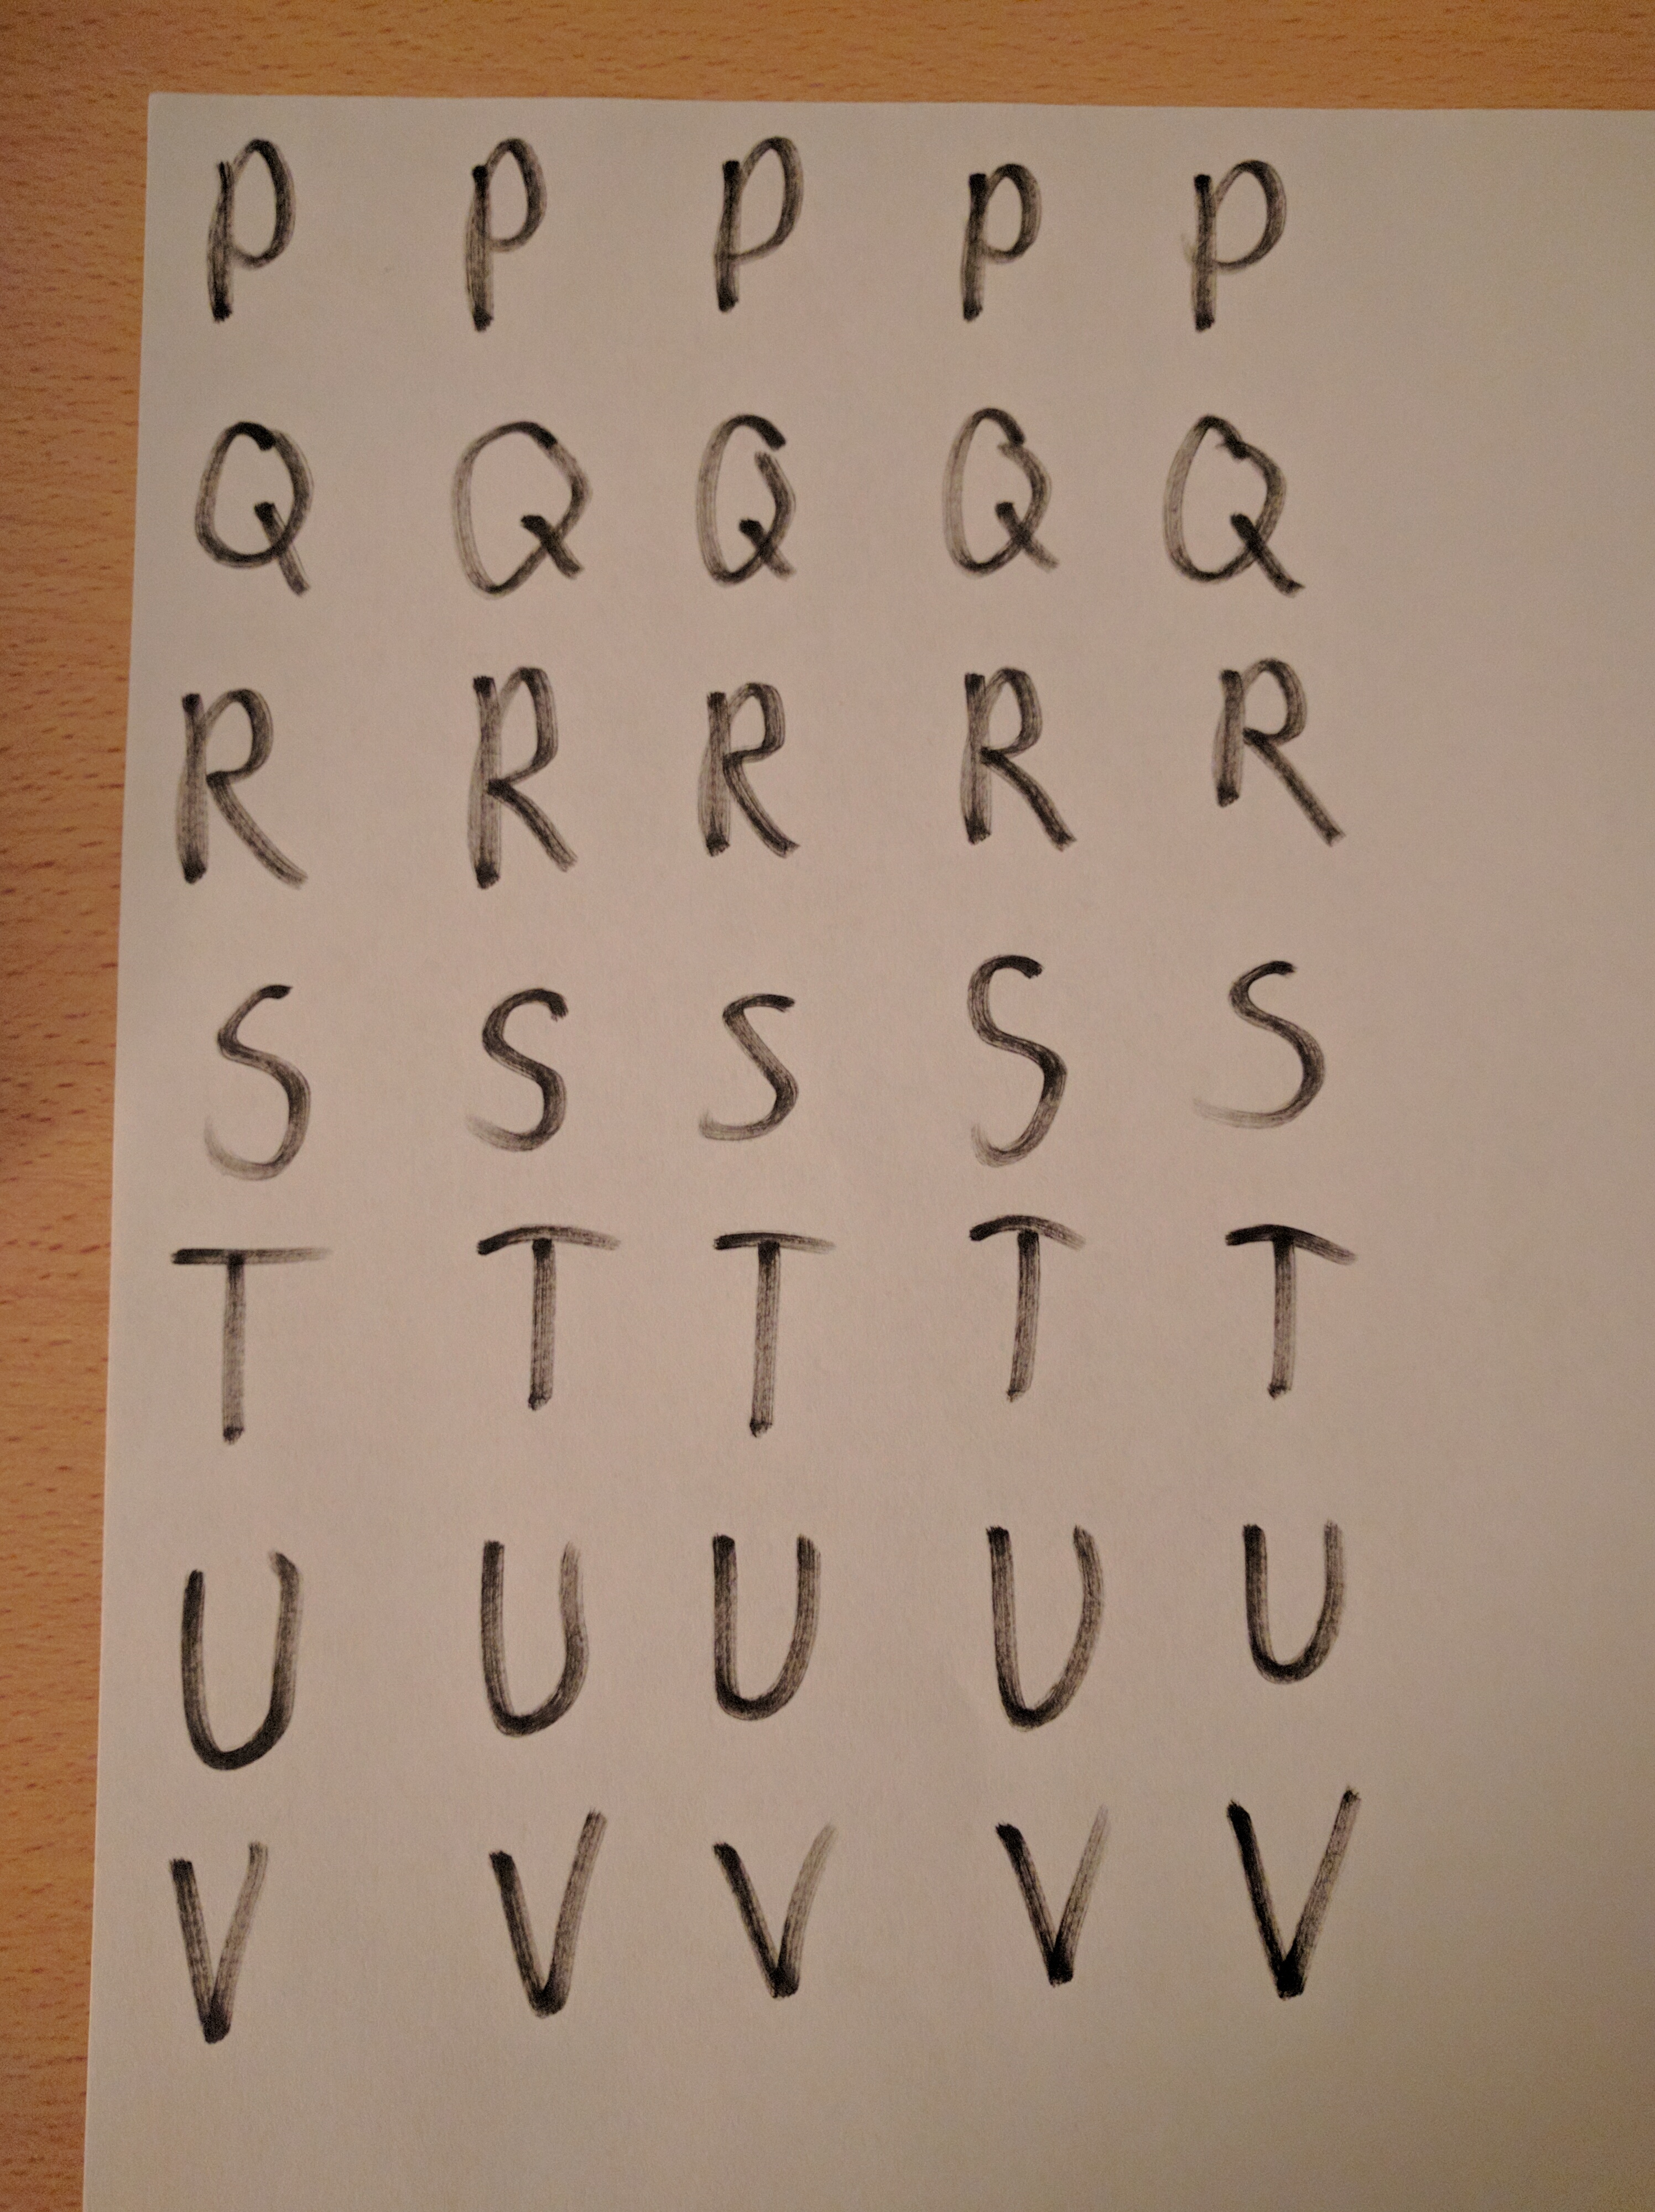 P P P P P
Q Q Q Q Q
R R R R R
S S S S S
T T T T T
U U U U U
V V V V V